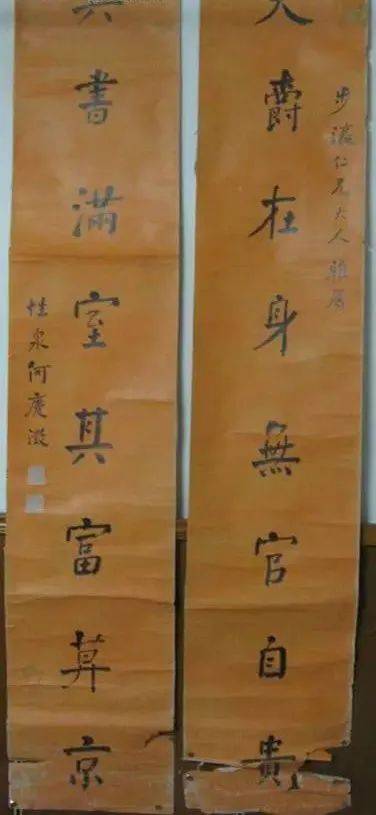 步瀛仁兄大人雅屬
天爵在身無官自貴
異書滿室其富莫京
性泉何慶澂